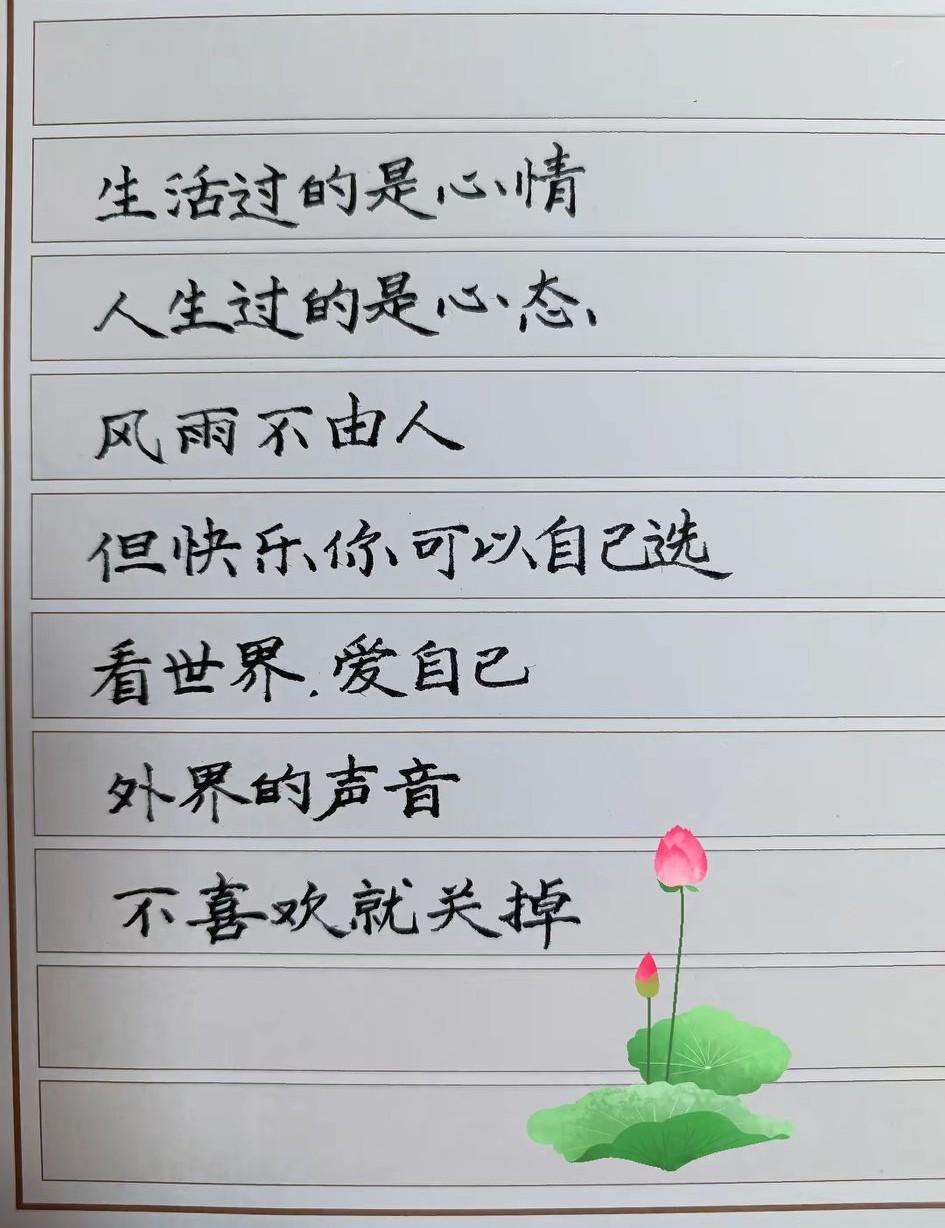 生活过的是心情
人生过的是心态
风雨不由人
但快乐你可以自己选
看世界.爱自己
外界的声音
不喜欢就关掉